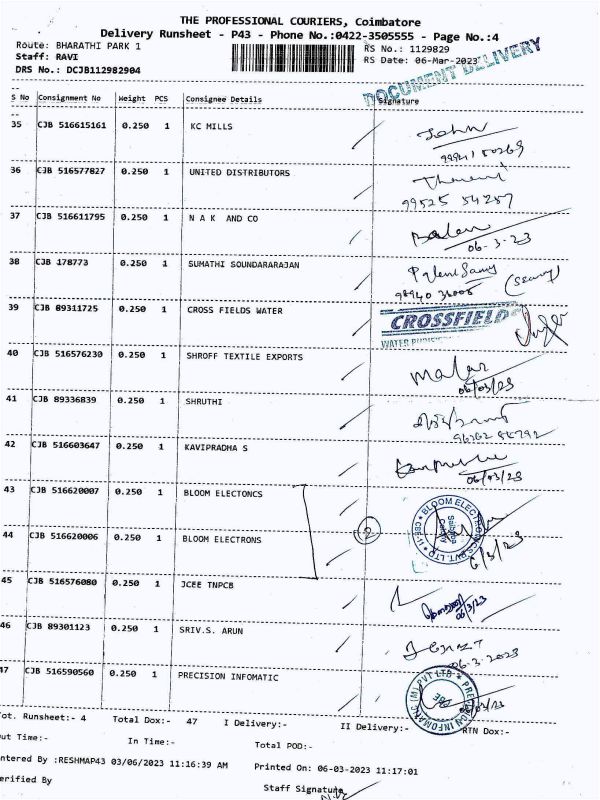 THE PROFESSIONAL COURIERS, Coimbatore
Delivery Runsheet - P43 - Phone No.:0422-3505555 - Page No.:4
Route: BHARATHI PARK 1 RS No.: 1129829
Staff: RAVI RS Date: 06-Mar-2023
DRS No.: DCJB112982904
DOCUMENT DELIVERY
S No Consignment No Weight PCS Consignee Details Signature
35 CJB 516615161 0.250 1 KC MILLS John
36 CJB 516577827 0.250 1 UNITED DISTRIBUTORS
99525 54257
37 CJB 516611795 0.250 1 N A K AND CO
06-3-23
38 CJB 178773 0.250 1 SUMATHI SOUNDARARAJAN
39 CJB 89311725 0.250 1 CROSS FIELDS WATER CROSSFIELDS
40 CJB 516576230 0.250 1 SHROFF TEXTILE EXPORTS Malar
06/03/23
41 CJB 89336839 0.250 1 SHRUTHI
42 CJB 516603647 0.250 1 KAVIPRADHA S
06/03/23
43 CJB 516620007 0.250 1 BLOOM ELECTONCS
BLOOM ELECTRONICS PVT. LTD
44 CJB 516620006 0.250 1 BLOOM ELECTRONS
2
6/3/23
45 CJB 516576080 0.250 1 JCEE TNPCB
06/3/23
46 CJB 89301123 0.250 1 SRIV.S. ARUN
06.3.2023
47 CJB 516590560 0.250 1 PRECISION INFOMATIC
PRECISION INFOMATIC (M) PVT LTD
CBE
ot. Runsheet:- 4 Total Dox:- 47 I Delivery:- II Delivery:- RTN Dox:-
ut Time:- In Time:- Total POD:-
ntered By :RESHMAP43 03/06/2023 11:16:39 AM Printed On: 06-03-2023 11:17:01
erified By Staff Signature